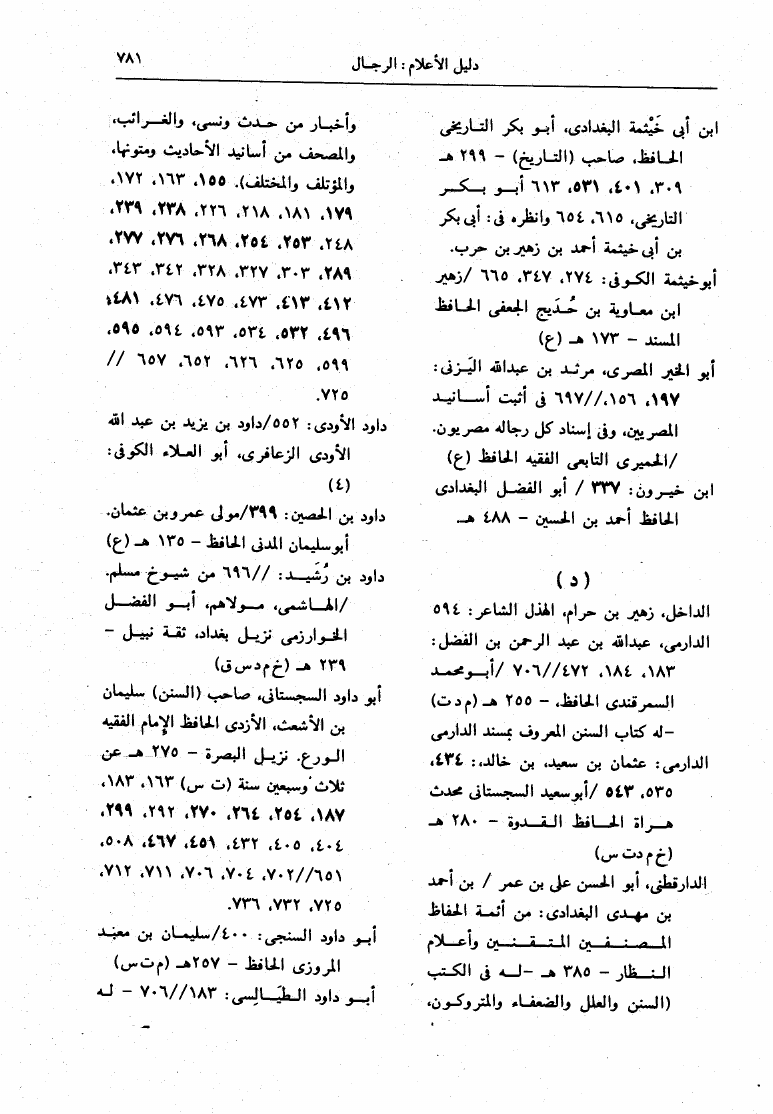 دليل الأعلام : الرجـال
٧٨١
ابن أبى خَيْثمة البغدادى، أبـو بكر التـاريخى
الحـافظ، صاحب (التـاريخ) – ٢٩٩ هـ
٣٠٩، ٤٠١، ٥٣١، ٦١٣ أبــو بــكــر
التاريخى، ٦١٥، ٦٥٤ وانظره فى : أبى بكر
بن أبى خيثمة أحمد بن زهير بن حرب.
أبو خيثمة الكـوفى : ٢٧٤، ٣٤٧، ٦٦٥ /زهير
ابن معـاوية بن حُـدَيج الجعفى الحـافظ
المسند – ١٧٣ هـ (ع)
أبو الخير المصرى، مرثـد بن عبدالله اليَـزنى :
١٩٧، ١٥٦،//٦٩٧ فى أثبت أســانيـد
المصريين، وفى إسناد كل رجاله مصريون.
/الحميرى التابعى الفقيه الحافظ (ع)
ابن خيـرون : ٣٣٧ / أبو الفضـل البغدادى
الحافظ أحمد بن الحسين – ٤٨٨ هـ.
( د )
الداخل، زهير بن حرام، الهذلى الشاعر : ٥٩٤
الدارمى، عبدالله بن عبد الرحمن بن الفضل :
١٨٣، ١٨٤، ٤٧٢//٧٠٦ /أبــومحمـد
السمرقندى الحافظ، – ٢٥٥ هـ (م د ت)
–له كتاب السنن المعروف بمسند الدارمى
الدارمى : عثمان بن سعيد، بن خالد، : ٤٣٤،
٥٣٥، ٥٤٣ /أبو سعيد السجستانى محدث
هــراة الحــافظ القــدوة – ٢٨٠ هـ
(خ م د ت س)
الدارقطنى، أبو الحسن على بن عمر / بن أحمد
بن مهـدى البغدادى : من أئمـة الحفاظ
المـصـنـفـين المـتـقـنـين وأعــلام
النـظار – ٣٨٥ هـ –لــه فى الكتـب
(السنن والعلل والضعفـاء والمتروكـون،
وأخبـار من حـدث ونسى، والغـرائب،
والمصحف من أسانيد الأحاديث ومتونها،
والمؤتلف والمختلف). ١٥٥، ١٦٣، ١٧٢،
١٧٩، ١٨١، ٢١٨، ٢٢٦، ٢٣٨، ٢٣٩،
٢٤٨، ٢٥٣، ٢٥٤، ٢٦٨، ٢٧٦، ٢٧٧،
٢٨٩، ٣٠٣، ٣٢٧، ٣٢٨، ٣٤٢، ٣٤٣،
٤١٢، ٤١٣، ٤٧٣، ٤٧٥، ٤٧٦، ٤٨١،
٤٩٦، ٥٣٢، ٥٣٤، ٥٩٣، ٥٩٤، ٥٩٥،
٥٩٩، ٦٢٥، ٦٢٦، ٦٥٢، ٦٥٧ //
٧٢٥.
داود الأودى : ٥٥٢/داود بن يزيد بن عبد الله
الأودى الزعافرى، أبو العـلاء الكوفى :
(٤)
داود بن الحصين : ٣٩٩/مولى عمرو بن عثمان.
أبو سليمان المدنى الحافظ – ١٣٥ هـ (ع)
داود بن رُشَيــد : //٦٩٦ من شيـوخ مسلم.
/الهـاشمى، مـولاهم، أبـو الفضـل
الخـوارزمى نزيـل بغداد، ثقـة نبيـل –
٢٣٩ هـ (خ م د س ق)
أبو داود السجستانى، صاحب (السنن) سليمان
بن الأشعث، الأزدى الحافظ الإمام الفقيه
الـورع. نزيـل البصرة – ٢٧٥ هـ عن
ثلاث وسبعين سنة (ت س) ١٦٣، ١٨٣،
١٨٧، ٢٥٤، ٢٦٤، ٢٧٠، ٢٩٢، ٢٩٩،
٤٠٤، ٤٠٥، ٤٣٢، ٤٥١، ٤٦٧، ٥٠٨،
٦٥١//٧٠٢، ٧٠٤، ٧٠٦، ٧١١، ٧١٢،
٧٢٥، ٧٣٢، ٧٣٦.
أبـو داود السنجى : ٤٠٠/سليمـان بن معبـد
المروزى الحافظ – ٢٥٧هـ (م ت س)
أبــو داود الـطَيَـالِـسى : ١٨٣//٧٠٦ – لـه